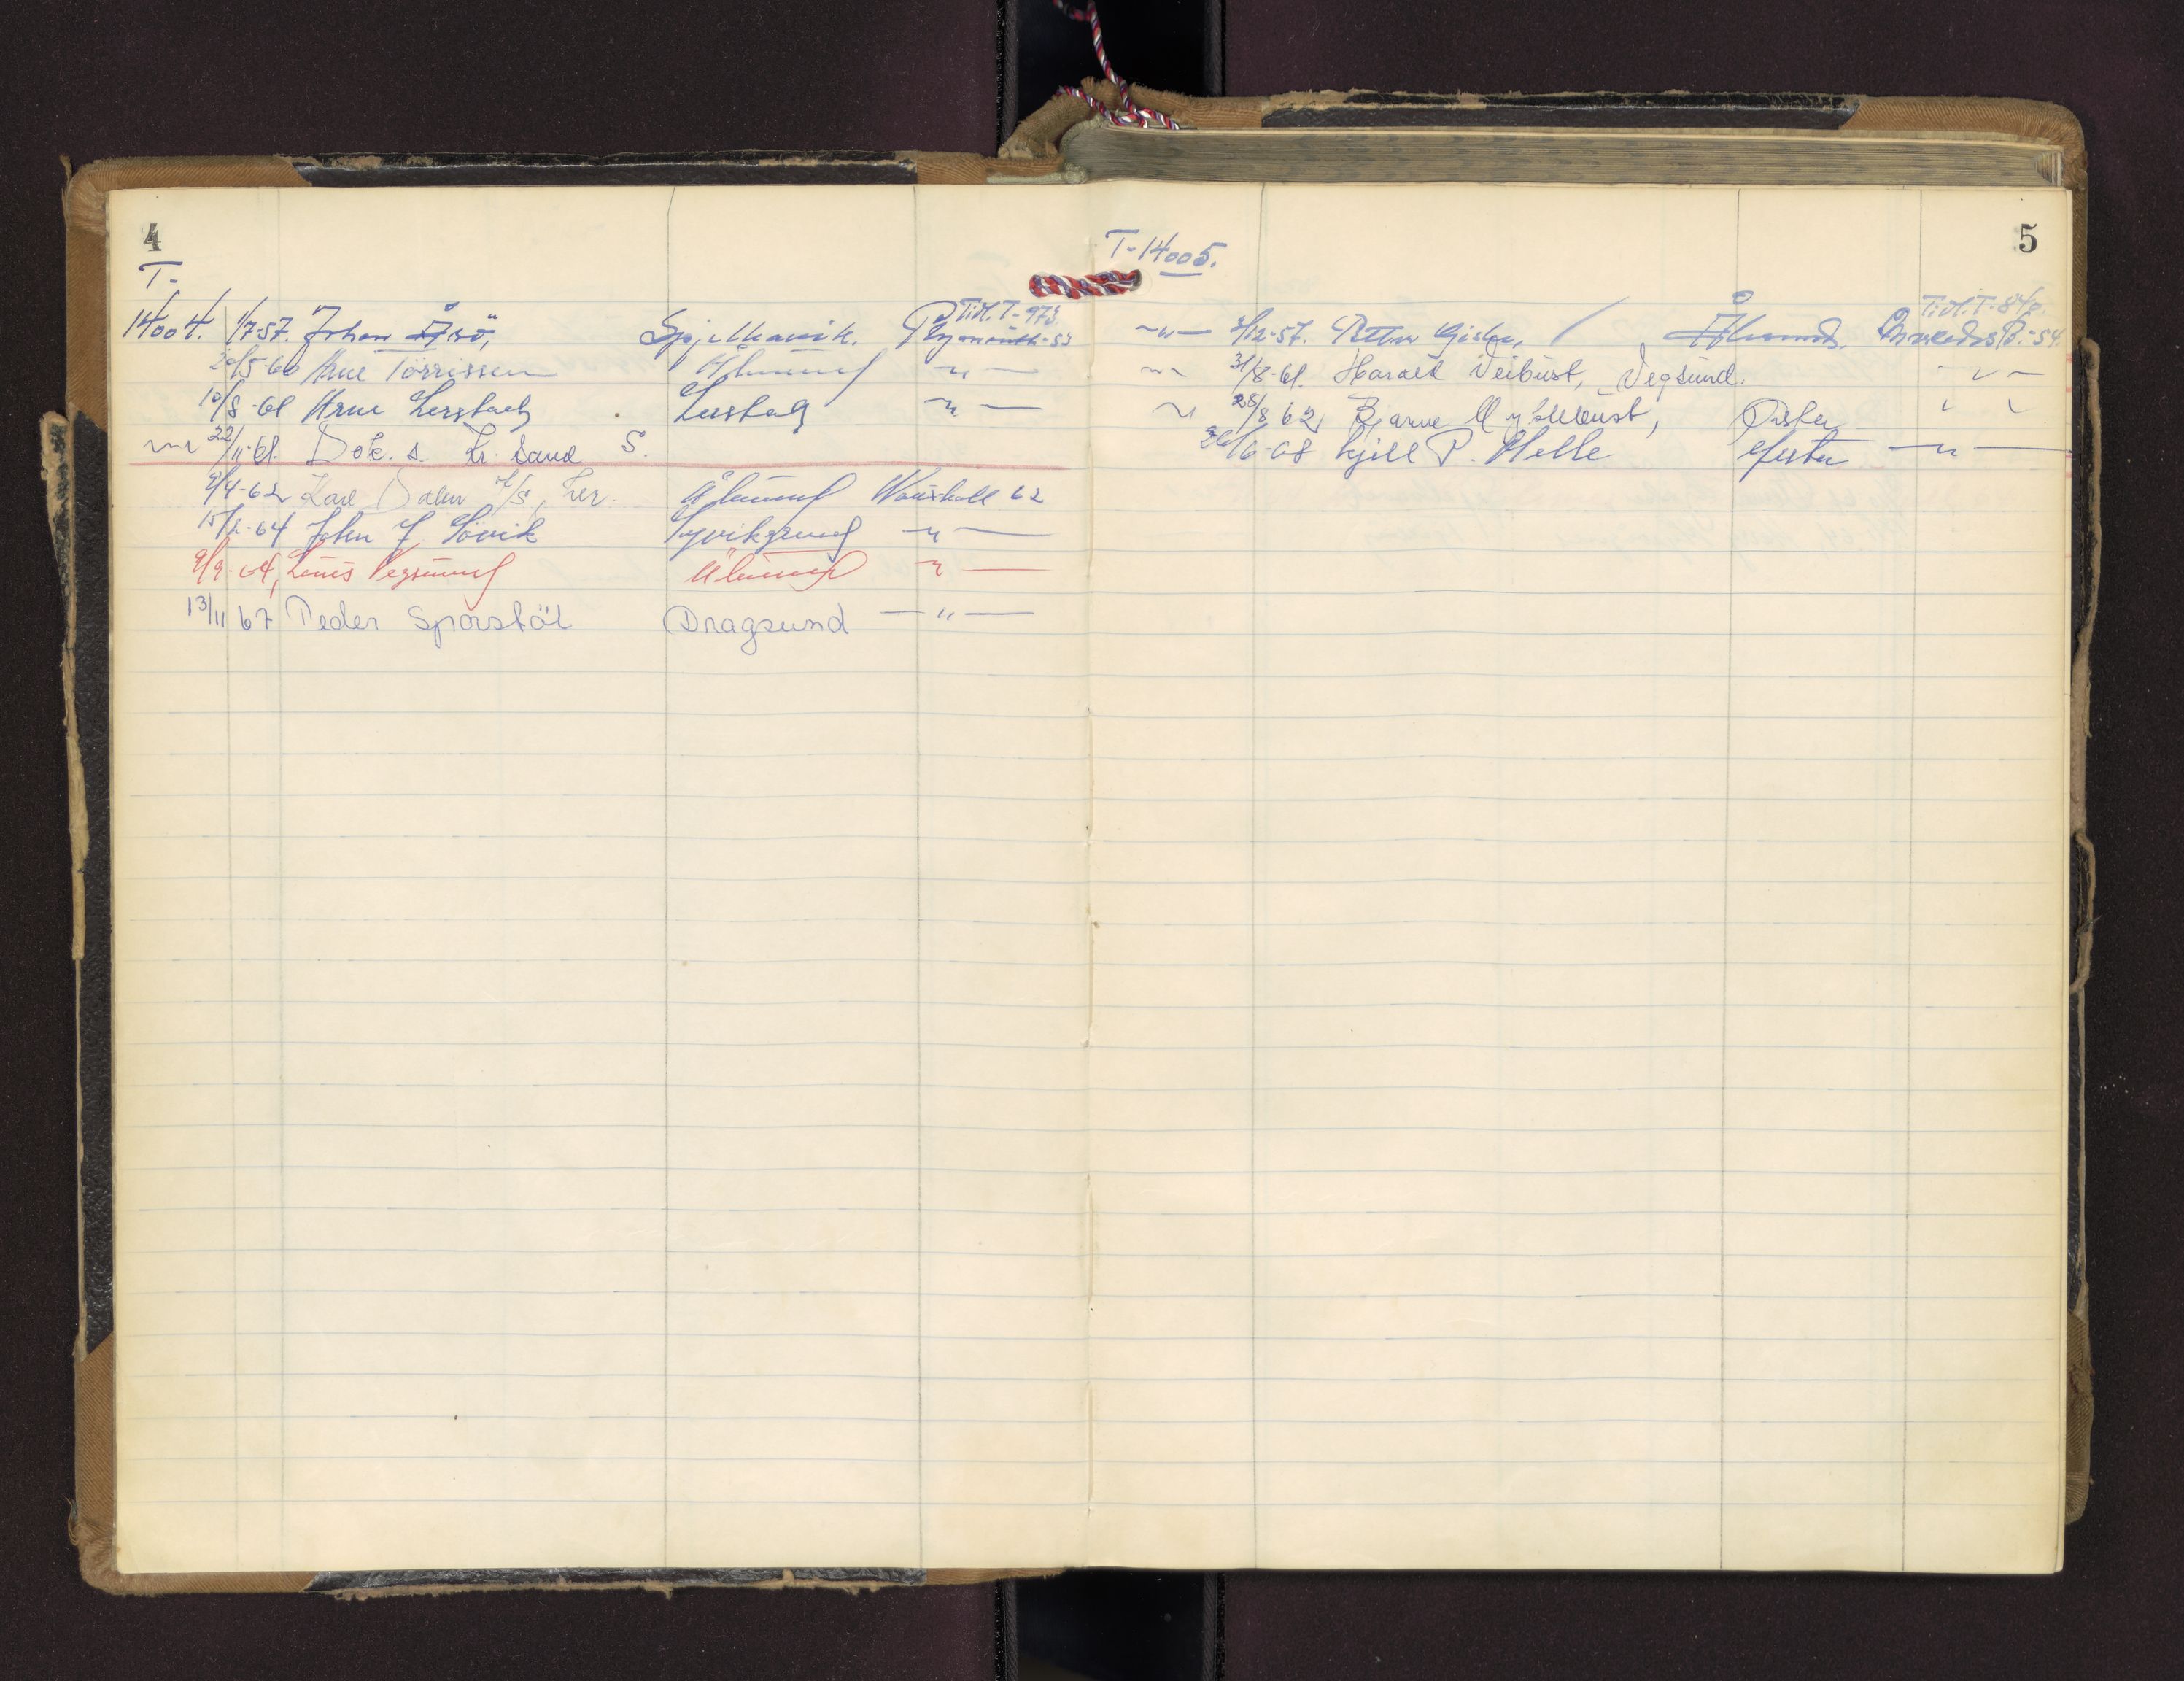 4
T-
Tidl. T-973
14004. 1/7-57. Johan Åsö, Spjelkavik. Plymouth-53
20/5-60 Arne Törrissen Ålesund -"-
10/8-61 Arne Lerstad, Lerstad -"-
-"- 22/11-61. Dok. s. Kr. Sand S.
9/4-62 Karl Dalen A/S, her. Ålesund Vauxhall 62
15/2-64 John J. Sövik Syvikgrend -"-
9/9-64, Linus Vegsund Ålesund -"-
13/11 67 Peder Sporstöl Dragsund -"-
5
T-14005.
Tidl. T-848.
-"- 3/12-57. Petter Giske, Ålesund. Mercedes B.-54.
-"- 31/8-61. Harald Veibust, Vegsund. -"-
-"- 28/8 62, Bjarne Myklebust, "
26/6-68 Kjell P. Helle -"-